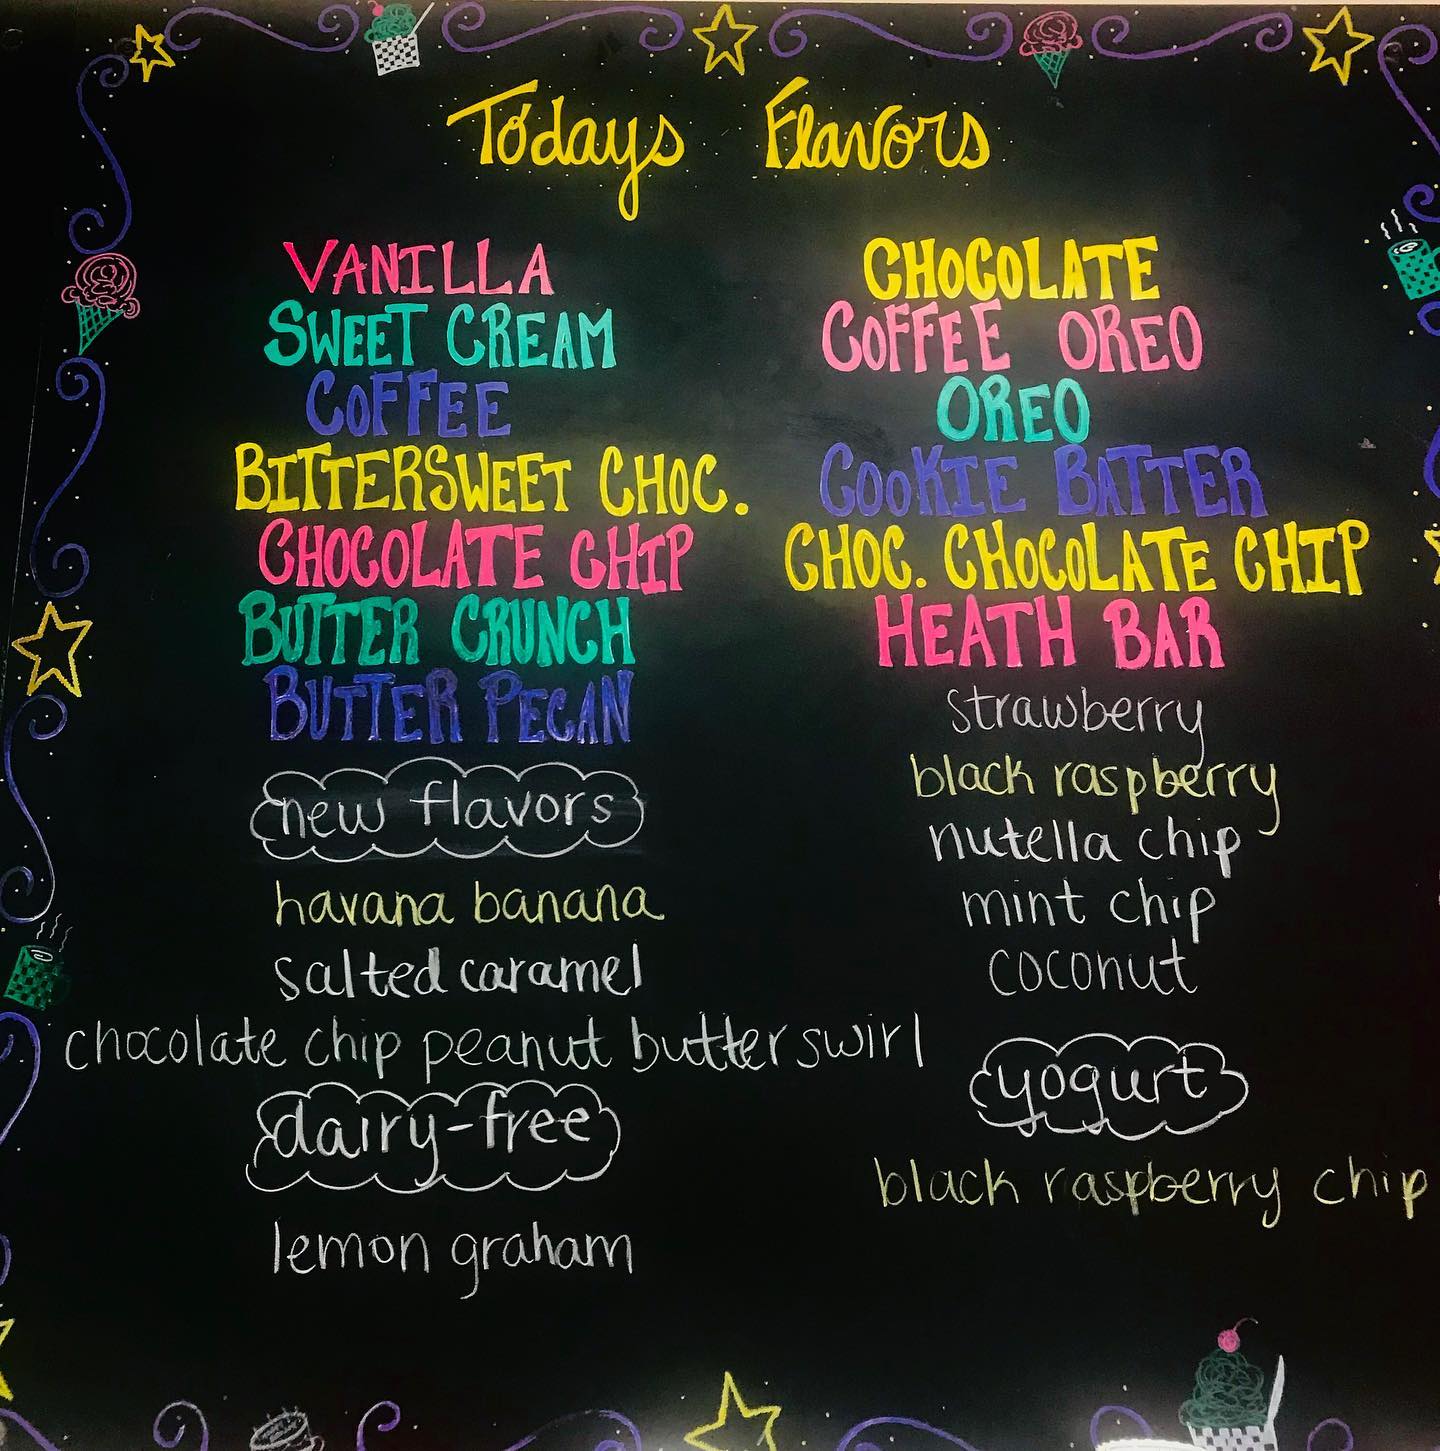 Todays Flavors
VANILLA
SWEET CREAM
COFFEE
BITTERSWEET CHOC.
CHOCOLATE CHIP
BUTTER CRUNCH
BUTTER PECAN
new flavors
havana banana
salted caramel
chocolate chip peanut butter swirl
dairy-free
lemon graham
CHOCOLATE
COFFEE OREO
OREO
COOKIE BATTER
CHOC. CHOCOLATE CHIP
HEATH BAR
strawberry
black raspberry
nutella chip
mint chip
coconut
yogurt
black raspberry chip